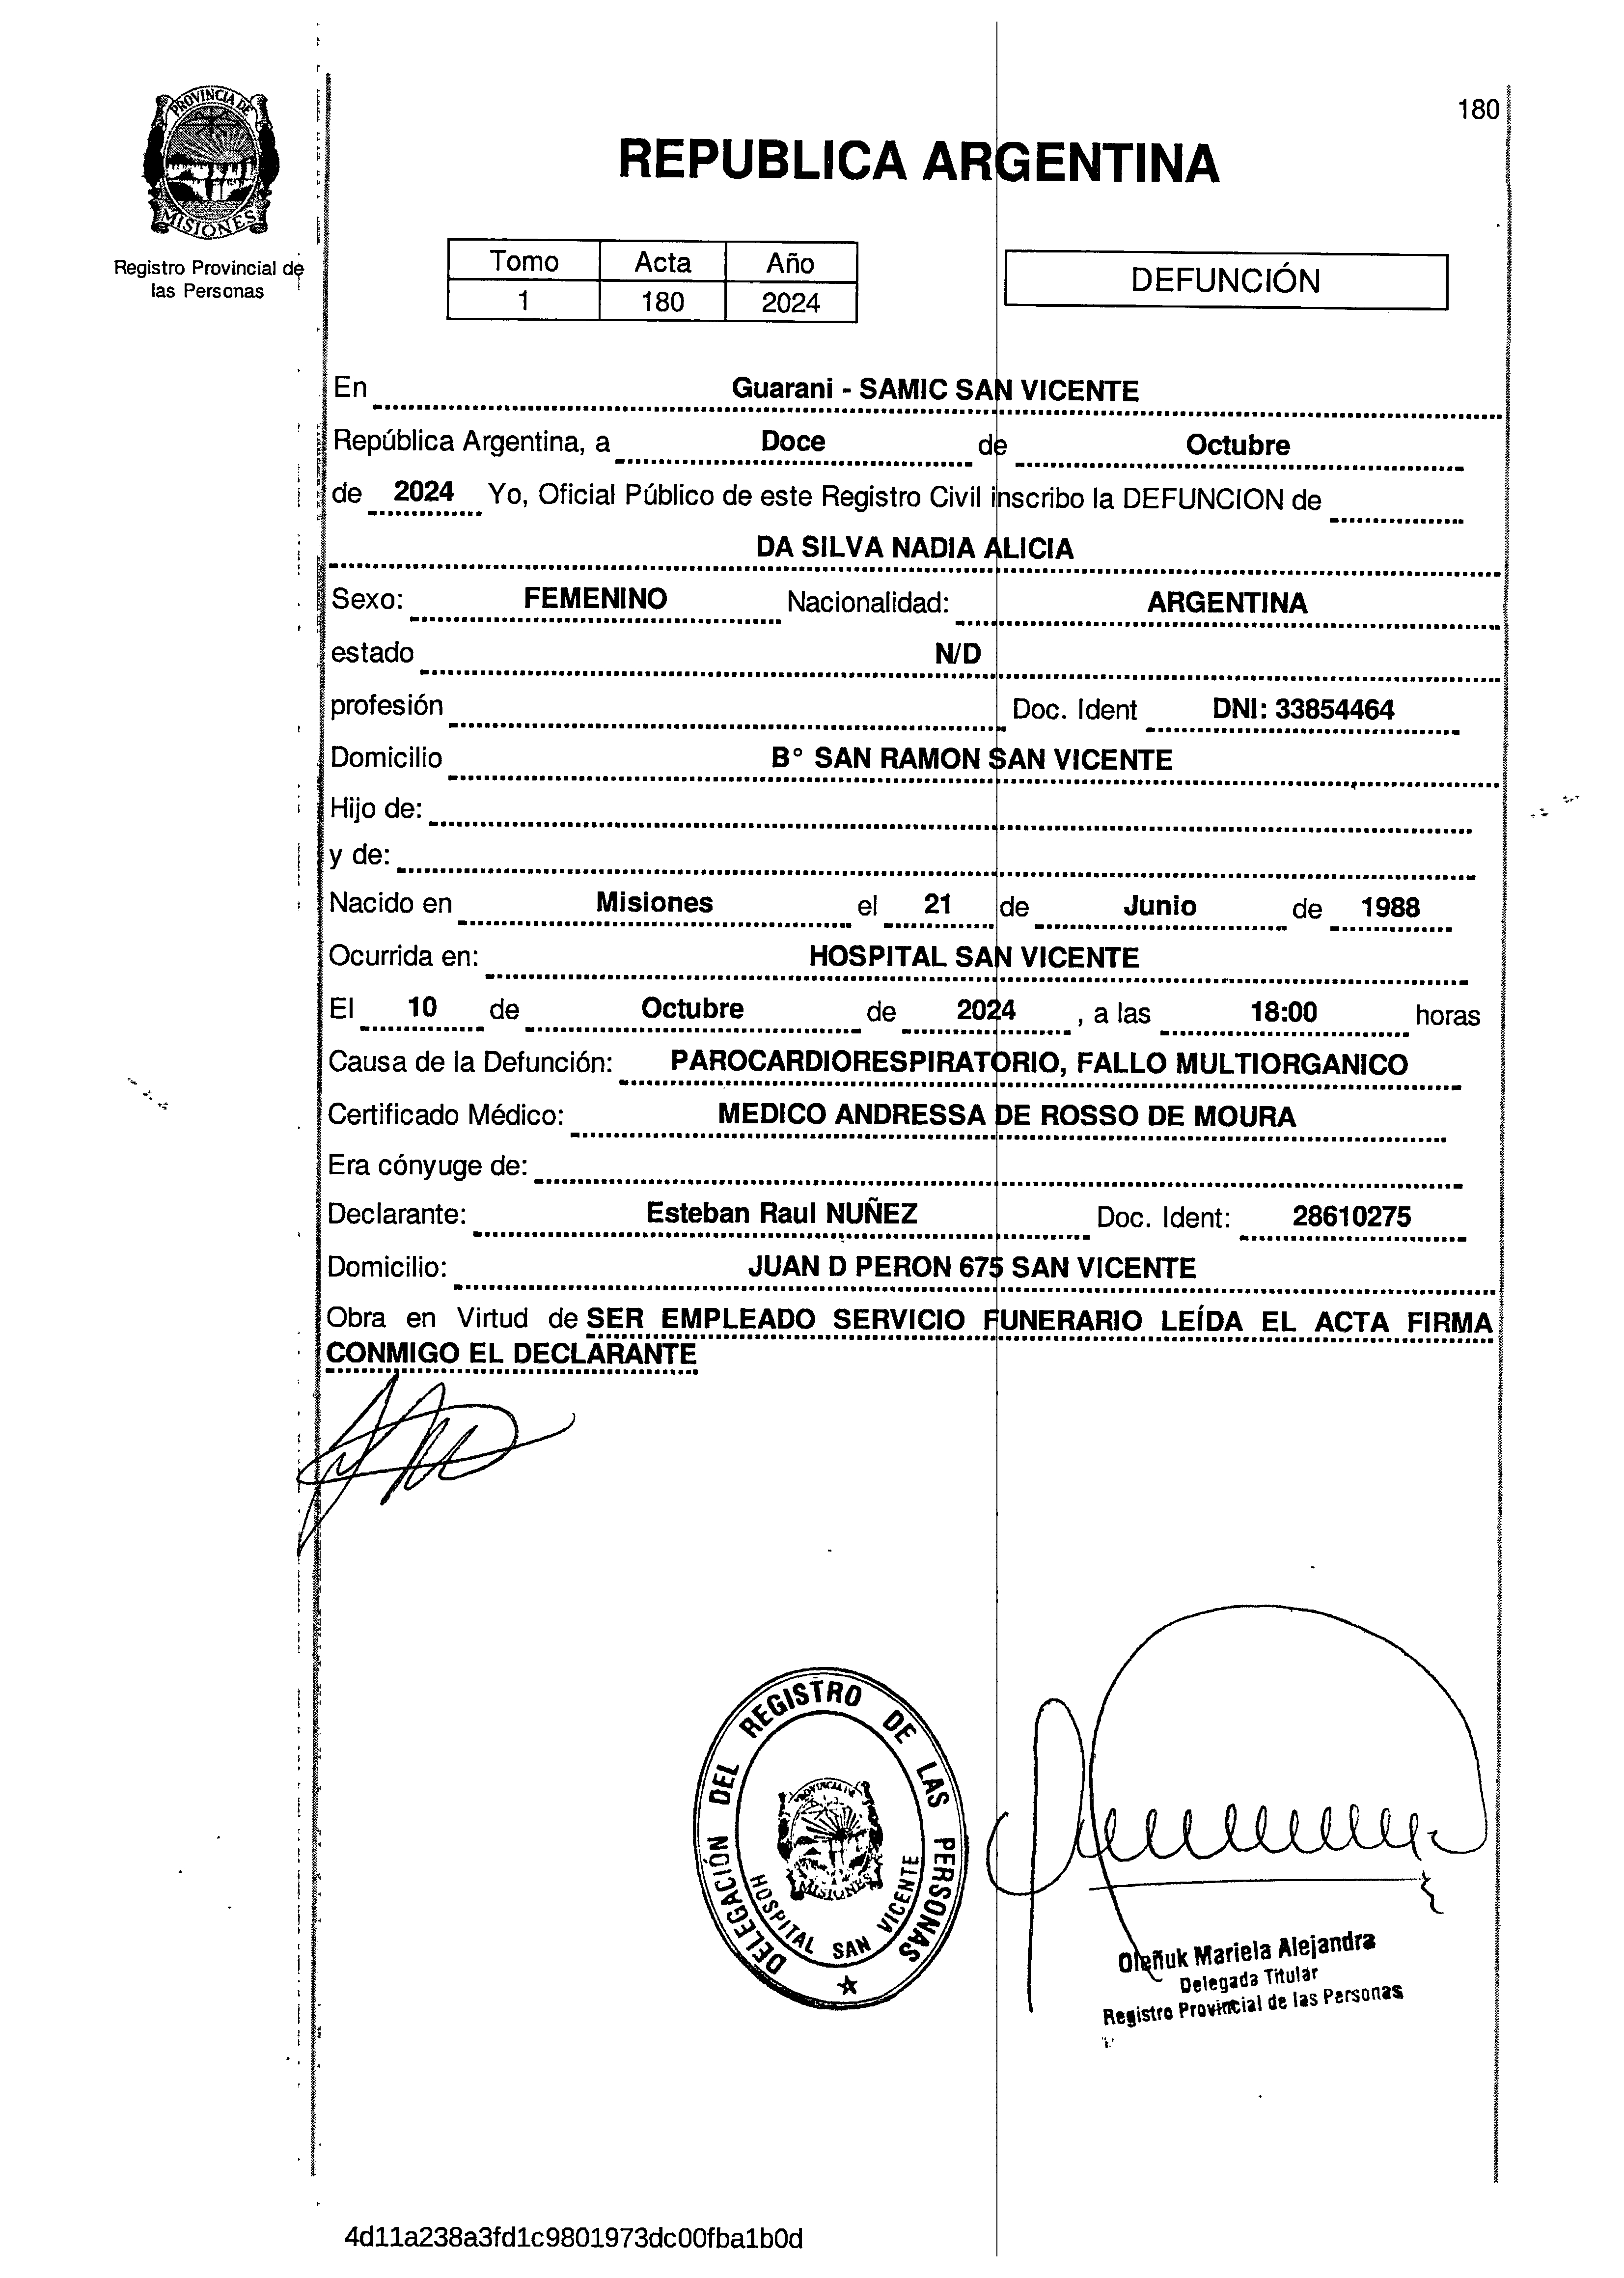 180
PROVINCIA DE
MISIONES
Registro Provincial de
las Personas
REPUBLICA ARGENTINA
Tomo Acta Año
1 180 2024
DEFUNCIÓN
En Guarani - SAMIC SAN VICENTE
República Argentina, a Doce de Octubre
de 2024 Yo, Oficial Público de este Registro Civil inscribo la DEFUNCION de
DA SILVA NADIA ALICIA
Sexo: FEMENINO Nacionalidad: ARGENTINA
estado N/D
profesión Doc. Ident DNI: 33854464
Domicilio B° SAN RAMON SAN VICENTE
Hijo de:
y de:
Nacido en Misiones el 21 de Junio de 1988
Ocurrida en: HOSPITAL SAN VICENTE
El 10 de Octubre de 2024 , a las 18:00 horas
Causa de la Defunción: PAROCARDIORESPIRATORIO, FALLO MULTIORGANICO
Certificado Médico: MEDICO ANDRESSA DE ROSSO DE MOURA
Era cónyuge de:
Declarante: Esteban Raul NUÑEZ Doc. Ident: 28610275
Domicilio: JUAN D PERON 675 SAN VICENTE
Obra en Virtud de SER EMPLEADO SERVICIO FUNERARIO LEÍDA EL ACTA FIRMA
CONMIGO EL DECLARANTE
DELEGACIÓN DEL REGISTRO DE LAS PERSONAS
PROVINCIA DE
MISIONES
HOSPITAL SAN VICENTE
Oleñuk Mariela Alejandra
Delegada Titular
Registro Provincial de las Personas
4d11a238a3fd1c9801973dc00fba1b0d